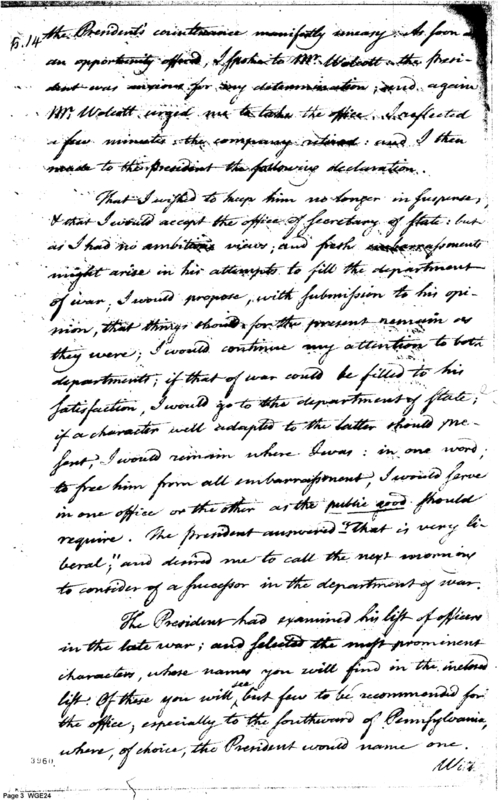 p.14 the President's countenance manifestly uneasy. As soon as
an opportunity offered, I spoke to Mr. Wolcott: the presi-
dent was anxious for my determination; and again
Mr. Wolcott urged me to take the office. I reflected
a few minutes: the company retired: and I then
made to the President the following declaration.
That I wished to keep him no longer in suspense,
& that I would accept the office of secretary of state: but
as I had no ambitious views; and fresh embarrassments
might arise in his attempts to fill the department
of war; I would propose, with submission to his opi-
nion, that things should for the present remain as
they were; I would continue my attention to both
departments; if that of war could be filled to his
satisfaction, I would go to the department of state;
if a character well adapted to the latter should pre-
sent, I would remain where I was: in one word;
to free him from all embarrassment, I would serve
in one office or the other as the public good should
require. The president answered "That is very li-
beral;" and desired me to call the next morning
to consider of a successor in the department of war.
The President had examined his list of officers
in the late war; and selected the most prominent
characters, whose names you will find in the inclosed
list. Of these you will see but few to be recommended for
the office, especially to the southward of Pennsylvania,
where, of choice, the President would name one.
3960
Page 3 WGE24